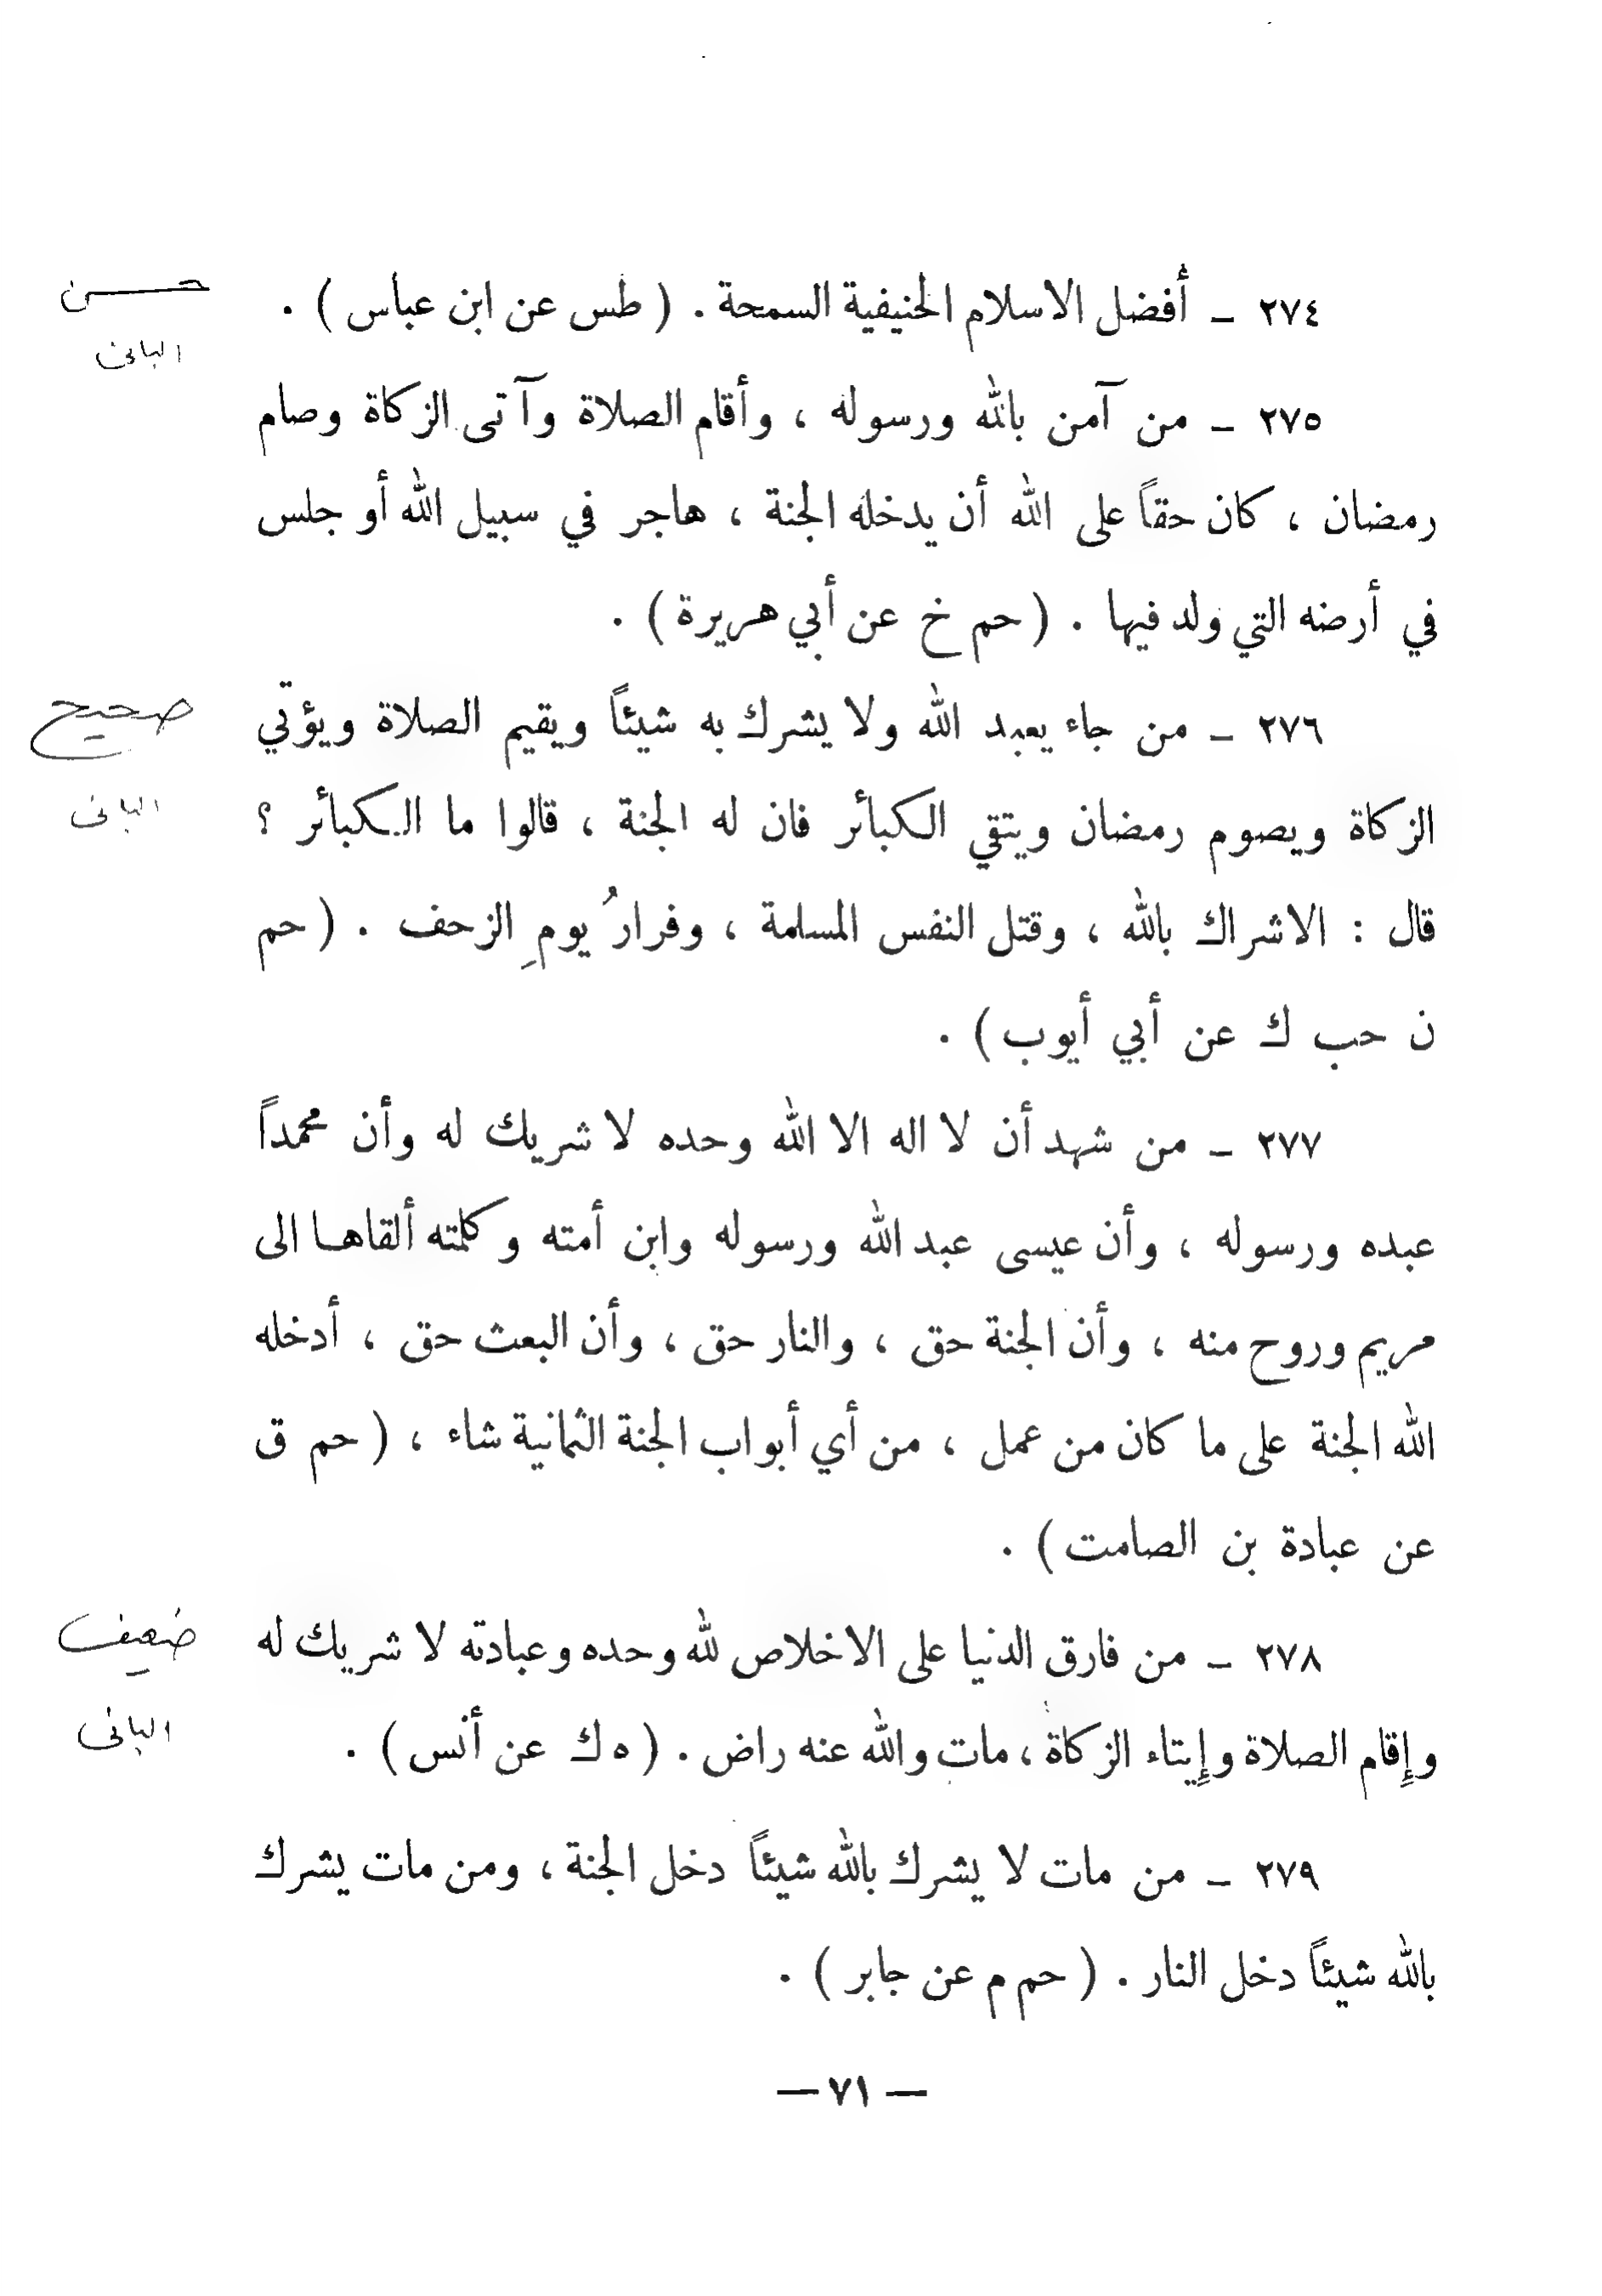 ٢٧٤ ـ أفضل الاسلام الحنيفية السمحة . ( طس عن ابن عباس ) .
حسن
البانى
٢٧٥ ـ من آمن بالله ورسوله ، وأقام الصلاة وآتى الزكاة وصام
رمضان ، كان حقاً على الله أن يدخله الجنة ، هاجر في سبيل الله أو جلس
في أرضه التي ولد فيها . ( حم خ عن أبي هريرة ) .
٢٧٦ ـ من جاء يعبد الله ولا يشرك به شيئاً ويقيم الصلاة ويؤتي
صحيح
الزكاة ويصوم رمضان ويتقي الكبائر فان له الجنة ، قالوا ما الكبائر ؟
البانى
قال : الاشراك بالله ، وقتل النفس المسلمة ، وفرارُ يومِ الزحف . ( حم
ن حب ك عن أبي أيوب ) .
٢٧٧ ـ من شهد أن لا اله الا الله وحده لا شريك له وأن محمداً
عبده ورسوله ، وأن عيسى عبد الله ورسوله وابن أمته وكلمته ألقاها الى
مريم وروح منه ، وأن الجنة حق ، والنار حق ، وأن البعث حق ، أدخله
الله الجنة على ما كان من عمل ، من أي أبواب الجنة الثمانية شاء ، ( حم ق
عن عبادة بن الصامت ) .
٢٧٨ ـ من فارق الدنيا على الاخلاص لله وحده وعبادته لا شريك له
ضعيف
وإقام الصلاة وإيتاء الزكاة ، مات والله عنه راض . ( ه ك عن أنس ) .
البانى
٢٧٩ ـ من مات لا يشرك بالله شيئاً دخل الجنة ، ومن مات يشرك
بالله شيئاً دخل النار . ( حم م عن جابر ) .
— ٧١ —